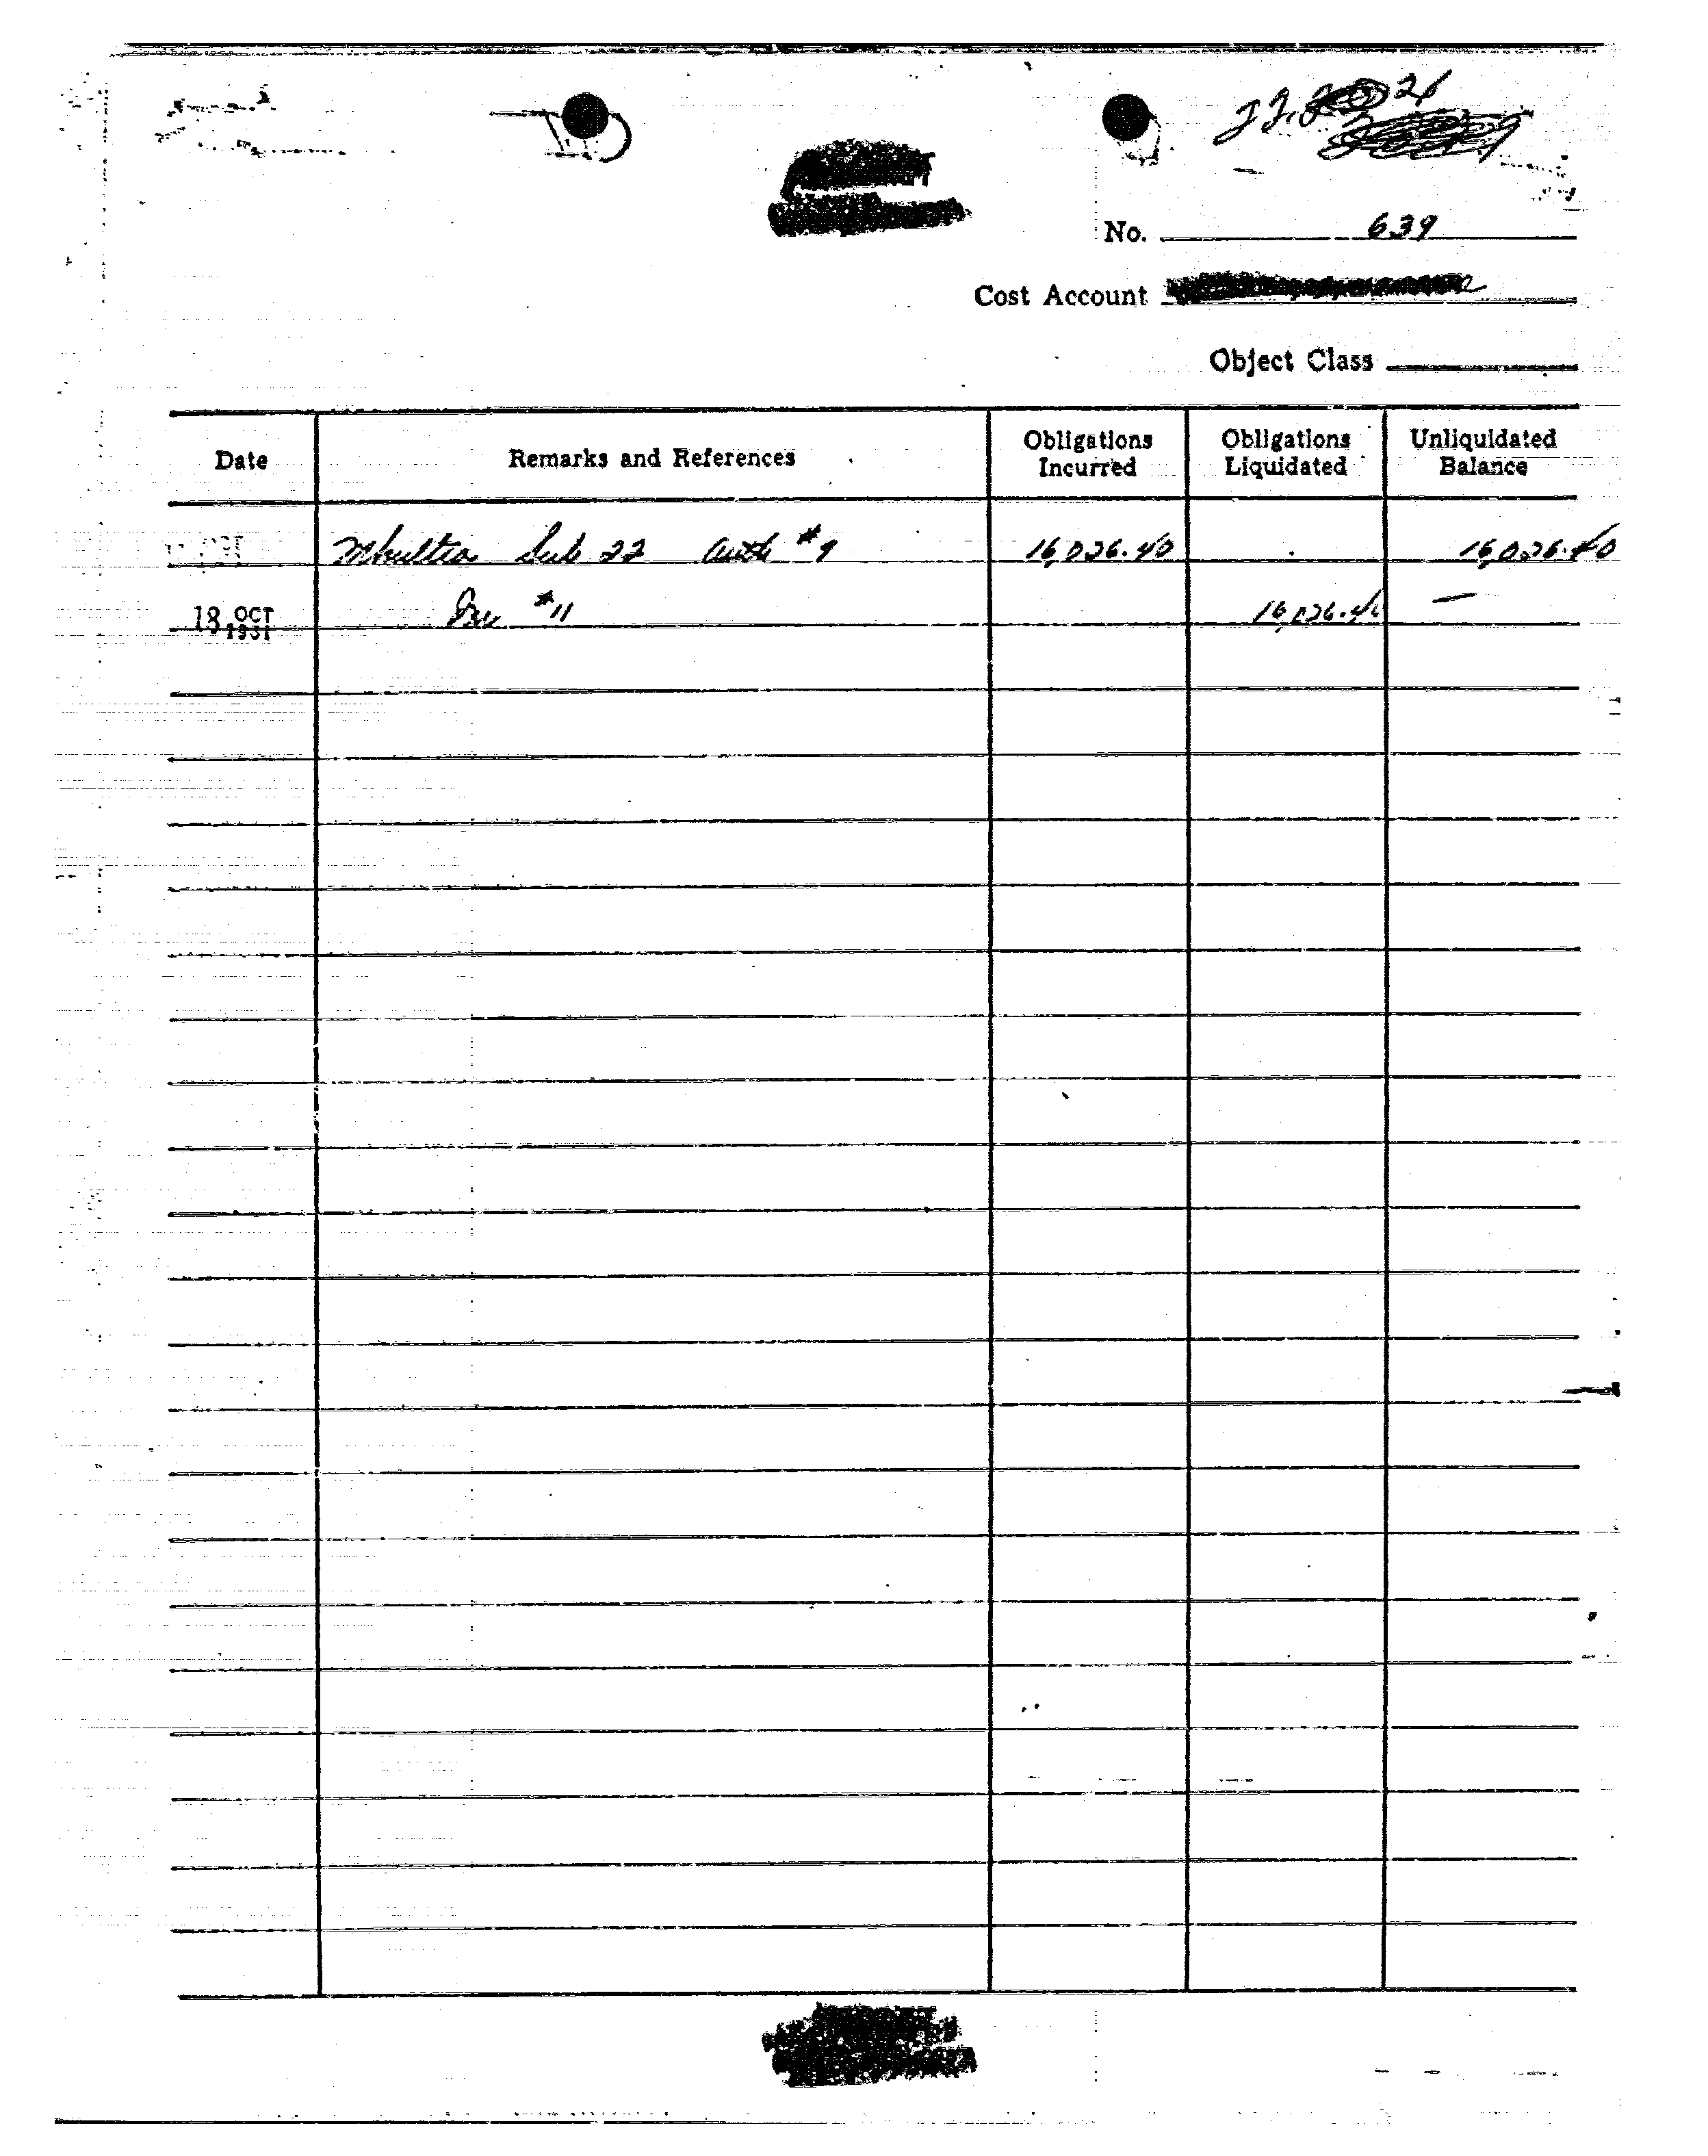 No. 639
Cost Account
Object Class
Date Remarks and References Obligations Incurred Obligations Liquidated Unliquidated Balance
Sub 22 Auth #9 16,026.40 16,026.40
18 OCT 1951 #11 16,026.40 —